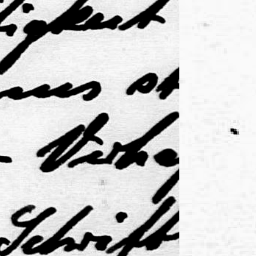 igkeit
us st
- Verha
Schrift